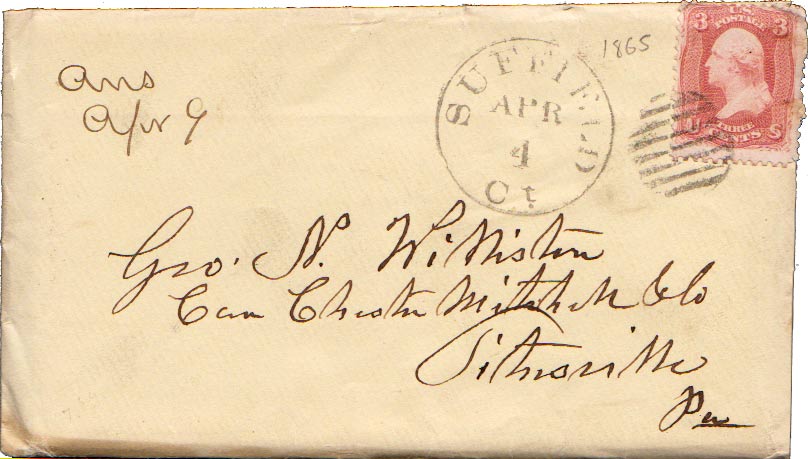 Ans
Apr 9
SUFFIELD
APR
4
Ct
1865
3 U.S. POSTAGE 3
THREE
CENTS
Geo. N. Williston
Care Chester Mitchell & Co
Titusville
Pa